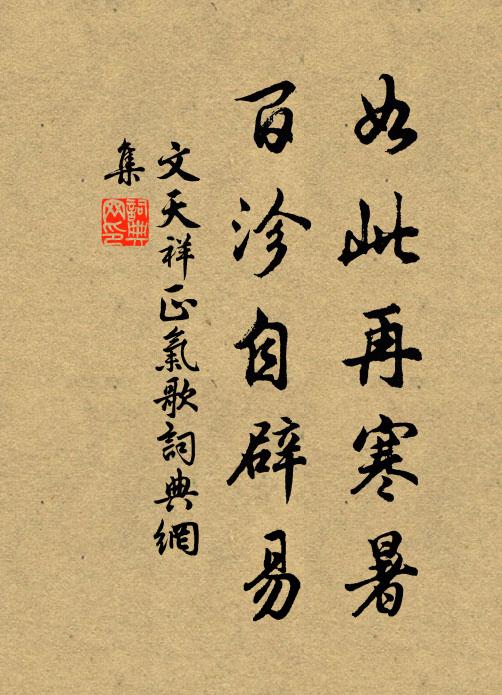 如此再寒暑
百沴自辟易
文天祥正氣歌詞典網
集
詞典
網印